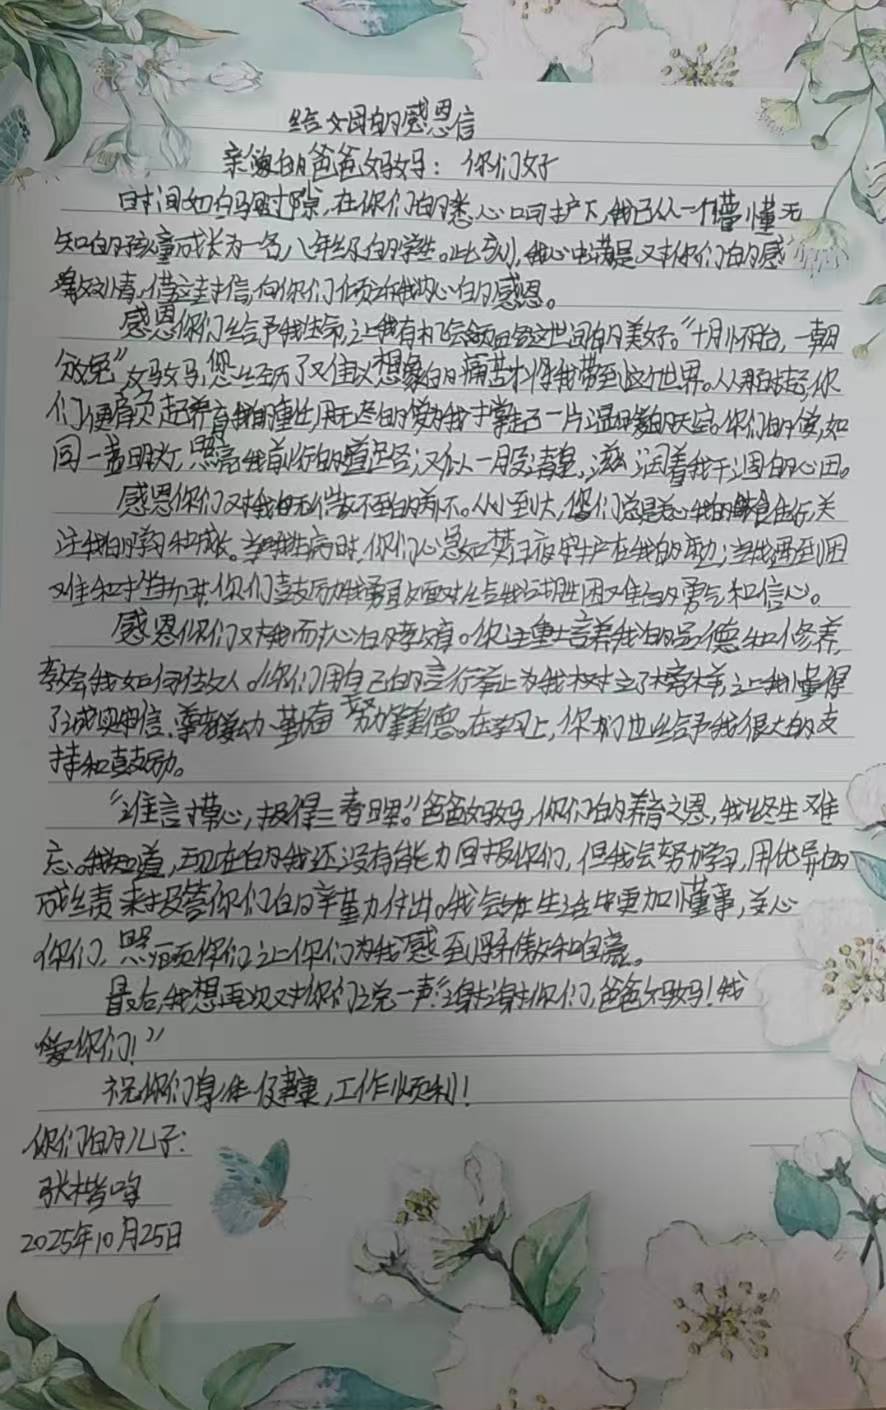 给父母的感恩信
亲爱的爸爸妈妈：你们好
时间如白马过隙，在你们的悉心呵护下，我已从一个懵懂无
知的孩童成长为一名八年级的学生。此刻，我心中满是对你们的感
激之情，借这封信，向你们倾诉我内心的感恩。
感恩你们给予我生命，让我有机会领略这世间的美好。“十月怀胎，一朝
分娩”妈妈，您经历了难以想象的痛苦才将我带到这个世界。从那时起，你
们便肩负起养育我的重任，用无尽的爱为我撑起了一片温暖的天空。你们的爱，如
同一盏明灯，照亮我前行的道路；又似一股清泉，滋润着我干涸的心田。
感恩你们对我无微不至的关怀。从小到大，你们总是关心我的饮食住行，关
注我的学习和成长。当我生病时，你们心急如焚，日夜守护在我的身边；当我遇到困
难和挫折时，你们鼓励我勇敢面对，给我战胜困难的勇气和信心。
感恩你们对我耐心的教育。你注重培养我的品德和修养，
教会我如何做人。你们用自己的言行举止为我树立了榜样，让我懂得
了诚实守信、尊老爱幼、勤奋努力等美德。在学习上，你们也给予我很大的支
持和鼓励。
“谁言寸草心，报得三春晖。”爸爸妈妈，你们的养育之恩，我终生难
忘。我知道，现在的我还没有能力回报你们，但我会努力学习，用优异的
成绩来报答你们的辛勤付出。我会在生活中更加懂事，关心
你们，照顾你们，让你们为我感到骄傲和自豪。
最后，我想再次对你们说一声：“谢谢你们，爸爸妈妈！我
爱你们！”
祝你们身体健康，工作顺利！
你们的儿子：
张楷
2025年10月25日